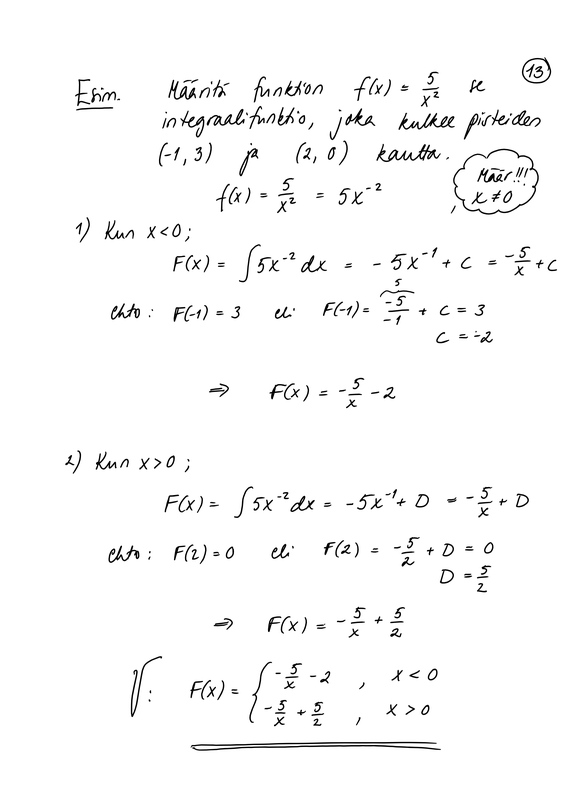 13
Esim. Määritä funktion f(x) = 5/x² se
integraalifunktio, joka kulkee pisteiden
(-1, 3) ja (2, 0) kautta.
Määr!!!
f(x) = 5/x² = 5x⁻² , x ≠ 0
1) Kun x<0;
F(x) = ∫5x⁻² dx = -5x⁻¹ + C = -5/x + C
5
ehto: F(-1) = 3 eli F(-1) = -5/-1 + C = 3
C = -2
⇒ F(x) = -5/x - 2
2) Kun x>0;
F(x) = ∫5x⁻² dx = -5x⁻¹ + D = -5/x + D
ehto: F(2) = 0 eli F(2) = -5/2 + D = 0
D = 5/2
⇒ F(x) = -5/x + 5/2
V: F(x) = { -5/x - 2 , x < 0
-5/x + 5/2 , x > 0